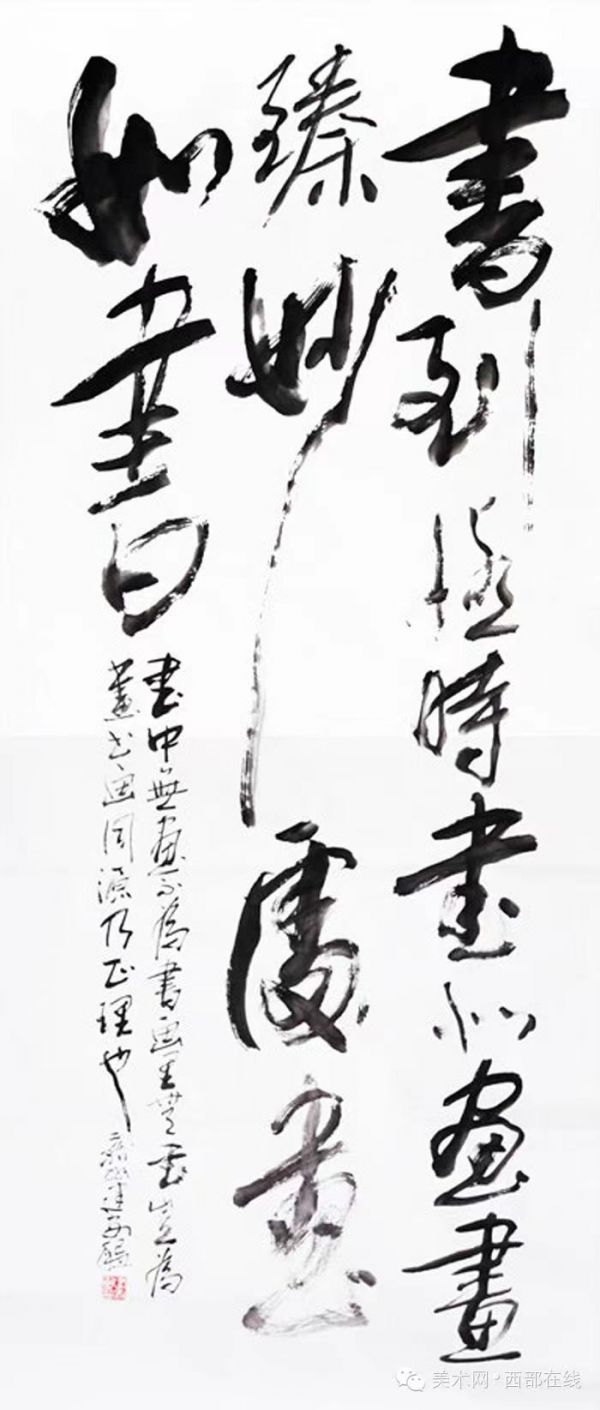 書到極時書似畫畫
臻妙處畫
如書
書中無畫不為書画里無書豈為
畫書画同源乃正理也
美术网·西部在线